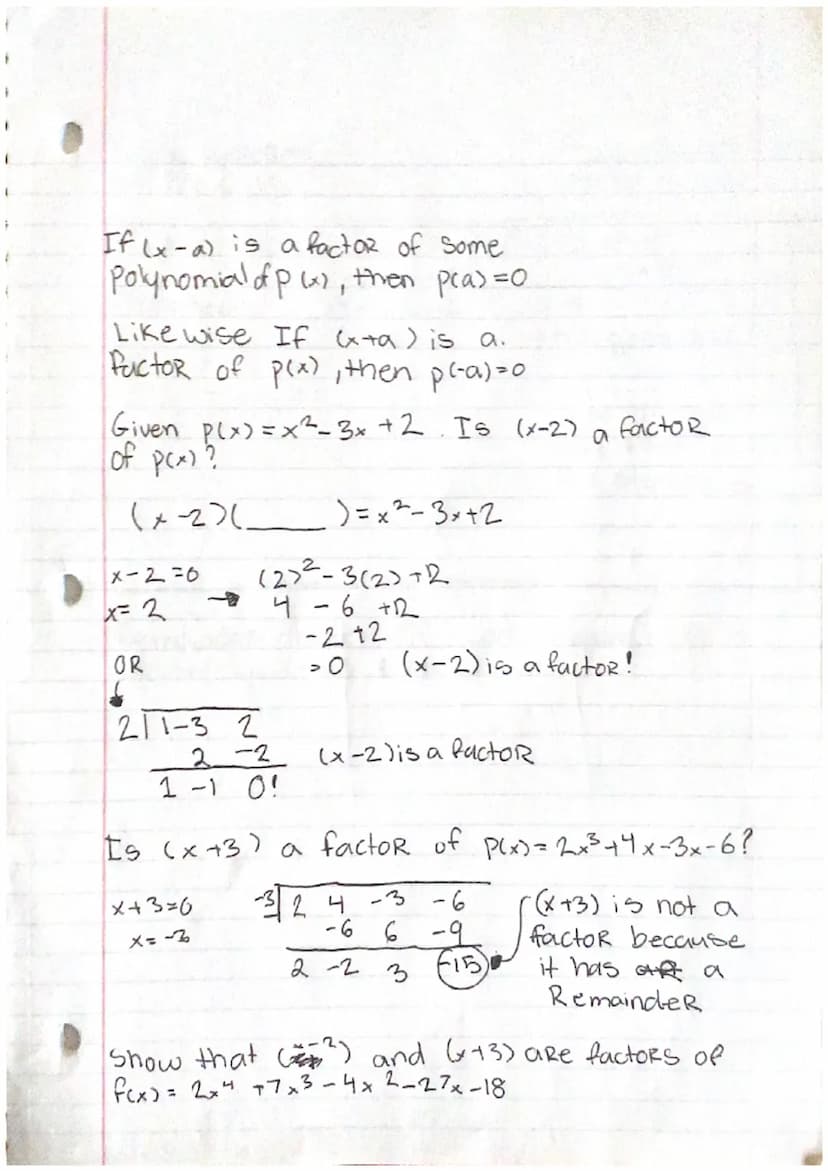 If (x-a) is a factor of some
polynomial of p(x), then p(a)=0
Likewise If (x+a) is a.
factor of p(x), then p(-a)=0
Given p(x)=x²-3x+2. Is (x-2) a factor
of p(x)?
(x-2)(_____)=x²-3x+2
x-2=0 (2)²-3(2)+2
x=2 → 4 -6 +2
-2 +2
OR =0 (x-2) is a factor!
2 | 1 -3 2
2 -2 (x-2) is a factor
1 -1 0!
Is (x+3) a factor of p(x)=2x³+4x-3x-6?
x+3=0 -3 | 2 4 -3 -6 (x+3) is not a
x=-3 -6 6 -9 factor because
2 -2 3 -15 it has a
Remainder
Show that (x-2) and (x+3) are factors of
f(x)=2x⁴+7x³-4x²-27x-18